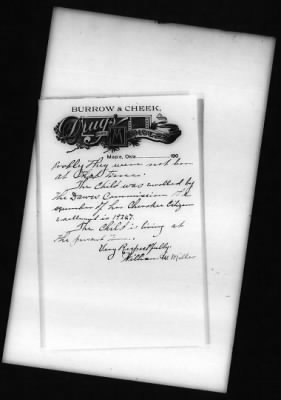 BURROW & CHEEK,
Drugs
Mople, Okla 190
they were not born
at that time.
The Child was enrolled by
the Dawes Commission the
number of her Cherokee Citizen
is
The Child is living at
the present time.
Very Respectfully
William W Miller